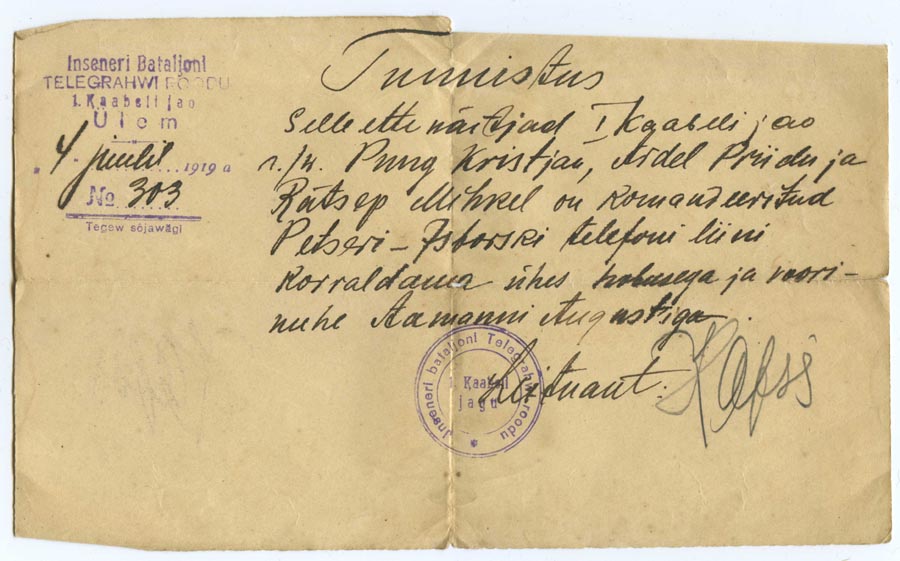 Inseneri Bataljoni
TELEGRAHWI ROODU
1. Kaabeli jao
Ülem
„4" juulil 1919 a
№ 303
Tegew sõjawägi
Tunnistus
Selle ettenäitjad I Kaabeli jao
r./n. Pung Kristjan, Aidel Priidu ja
Rätsep Mihkel on komandeeritud
Petseri-Isborski telefoni liini
korraldama ühes hobusega ja voori-
mehe Aamanni Augustiga.
Leitnant:
Inseneri bataljoni Telegrahwi roodu
1. Kaabeli
jagu